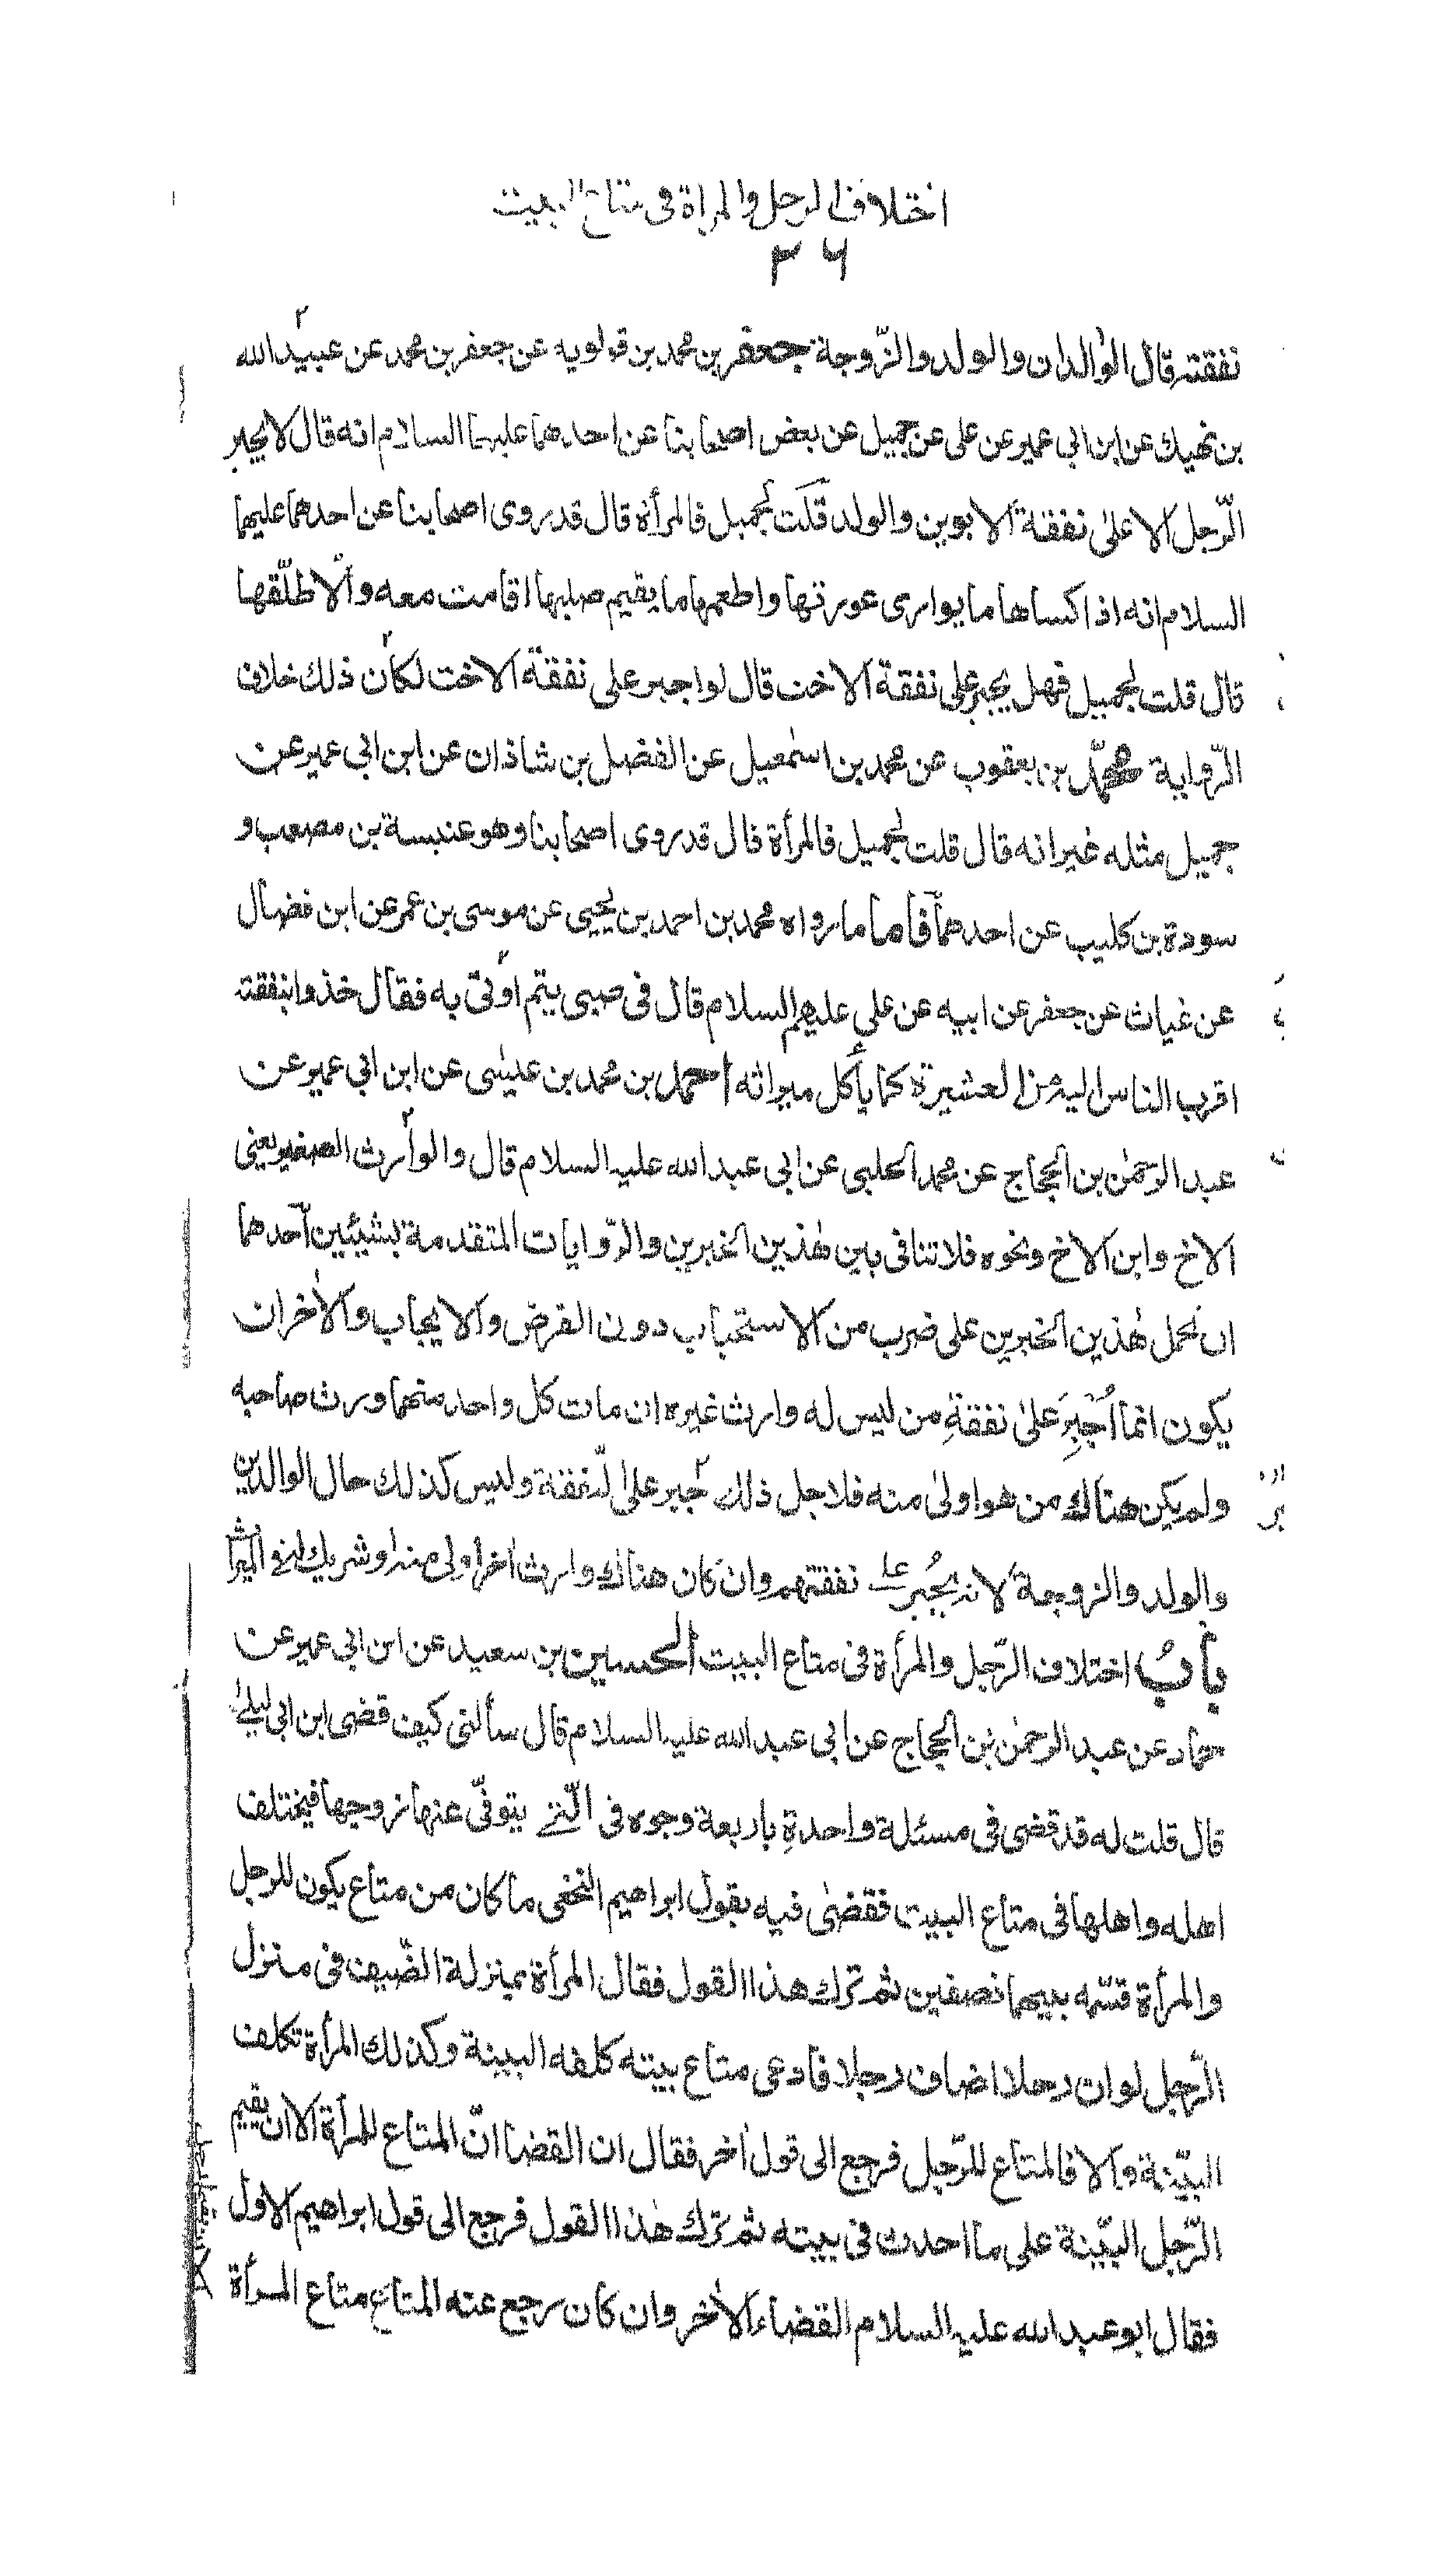 اختلاف الرجل والمراة فى متاع البيت
٣٦
نفقته قال الوالدان والولد والزّوجة جعفر بن محمد بن قولويه عن جعفر بن محمد عن عبيد الله
بن نهيك عن ابن ابى عمير عن على عن جميل عن بعض اصحابنا عن احدهما عليهما السلام انه قال لا يجبر
الرّجل الا على نفقة الابوين والولد قلت لجميل فالمرأة قال قد روى اصحابنا عن احدهما عليهما
السلام انه اذا كساها ما يوارى عورتها واطعمها ما يقيم صلبها اقامت معه والا طلّقها
قال قلت لجميل فهل يجبر على نفقة الاخت قال لو اجبر على نفقة الاخت لكان ذلك خلاف
الرّواية محمّد بن يعقوب عن محمد بن اسمعيل عن الفضل بن شاذان عن ابن ابى عمير عن
جميل مثله غير انه قال قلت لجميل فالمرأة قال قد روى اصحابنا وهو عنبسة بن مصعب و
سودة بن كليب عن احدهما فأما ما رواه محمد بن احمد بن يحيى عن موسى بن عمر عن ابن فضال
عن غياث عن جعفر عن ابيه عن على عليهم السلام قال فى صبى يتيم اوتى به فقال خذوا بنفقته
اقرب الناس اليه من العشيرة كما يأكل ميراثه احمد بن محمد بن عيسى عن ابن ابى عمير عن
عبد الرحمن بن الحجاج عن محمد الحلبى عن ابى عبد الله عليه السلام قال والوارث الصغير يعنى
الاخ وابن الاخ ونحوه فلا تنافى بين هذين الخبرين والرّوايات المتقدمة بشيئين احدهما
ان نحمل هذين الخبرين على ضرب من الاستحباب دون الفرض والايجاب والاخر ان
يكون انما اُجْبِرَ على نفقةِ من ليس له وارث غيره ان مات كل واحد منهما ورث صاحبه
ولم يكن هناك من هو اولى منه فلاجل ذلك جبر على النّفقة وليس كذلك حال الوالدين
والولد والزوجة لانه يُجبر على نفقتهم وان كان هناك وارث اخر اولى منه او شريك له فى الميراث
بابُ اختلاف الرّجل والمرأة فى متاع البيت الحسين بن سعيد عن ابن ابى عمير عن
حماد عن عبد الرحمن بن الحجاج عن ابى عبد الله عليه السلام قال سألنى كيف قضى ابن ابى ليلى
قال قلت له قد قضى فى مسئلة واحدةِ باربعة وجوه فى الّتى يتوفّى عنها زوجها فيختلف
اهله واهلها فى متاع البيت فقضى فيه بقول ابراهيم النخعى ما كان من متاع يكون للرجل
والمرأة قسّمه بينهما نصفين ثم ترك هذا القول فقال المرأة بمنزلة الضّيف فى منزل
الرّجل لو ان رجلا اضاف رجلا فادعى متاع بيته كلفه البينة وكذلك المرأة تكلف
البيّنة والا فالمتاع للرّجل فرجع الى قول اخر فقال ان القضا انّ المتاع للمرأة الا ان يقيم
الرّجل البيّنة على ما احدث فى بيته ثم ترك هذا القول فرجع الى قول ابراهيم الاول
فقال ابو عبد الله عليه السلام القضاء الاخر وان كان رجع عنه المتاع متاع المرأة